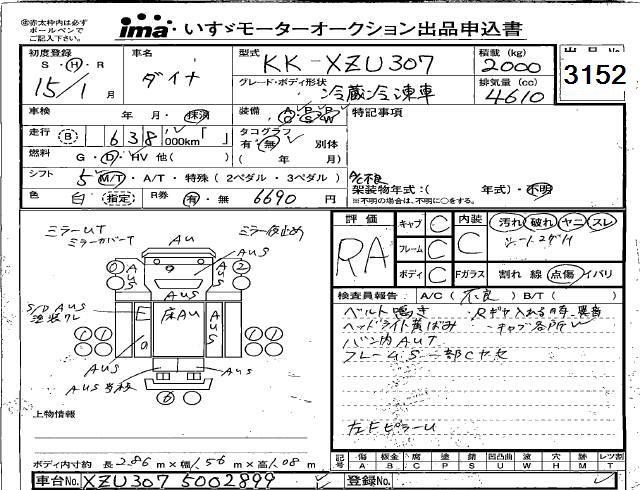 ㊟赤太枠内は必ず
ボールペンで
ご記入下さい。
ima いすゞモーターオークション出品申込書
初度登録
S・H・R
15/1月
車名
ダイナ
型式
KK-XZU307
積載(kg)
2000
出品No
3152
グレード・ボディ形状
冷蔵冷凍車
排気量(cc)
4610
車検 年・月・抹消
装備 A P P
C S W
特記事項
走行 B 638 000km「 」
タコグラフ
有・無 別体
( 年 月)
燃料 G・D・HV 他( )
シフト 5 M/T・A/T・特殊(2ペダル・3ペダル)
架装物年式:( 年式)・不明
※不明の場合は、不明に○をする。
色 白 指定 R券 有・無 6690円
評価
RA
キャブ C
フレーム C
ボディ C
内装 C
汚れ 破れ・ヤニ・スレ
シートコゲH
Fガラス 割れ 線 点傷 イバリ
ミラーUT
ミラーカバーT
AU
AUS
AUS
AUS
2
AUS
S/D AUS
塗装ワレ
E
床AU
a
AUS
AUS
AUS
検査員報告 A/C(不良)B/T( )
ベルト鳴き Rギヤ入れる時異音
ヘッドライト黄ばみ キャブ各所U
バン内AUT
フレームS一部Cヤセ
左FピラーU
上物情報
ボディ内寸約 長2.86m×幅1.56m×高1.08m
記号 傷 A 板金 B 腐 C 塗 P 錆 S 凹 U 凸凹曲 U 波 W 穴 H 時 M レツ割 T
車台No. XZU307 5002899 登録No.